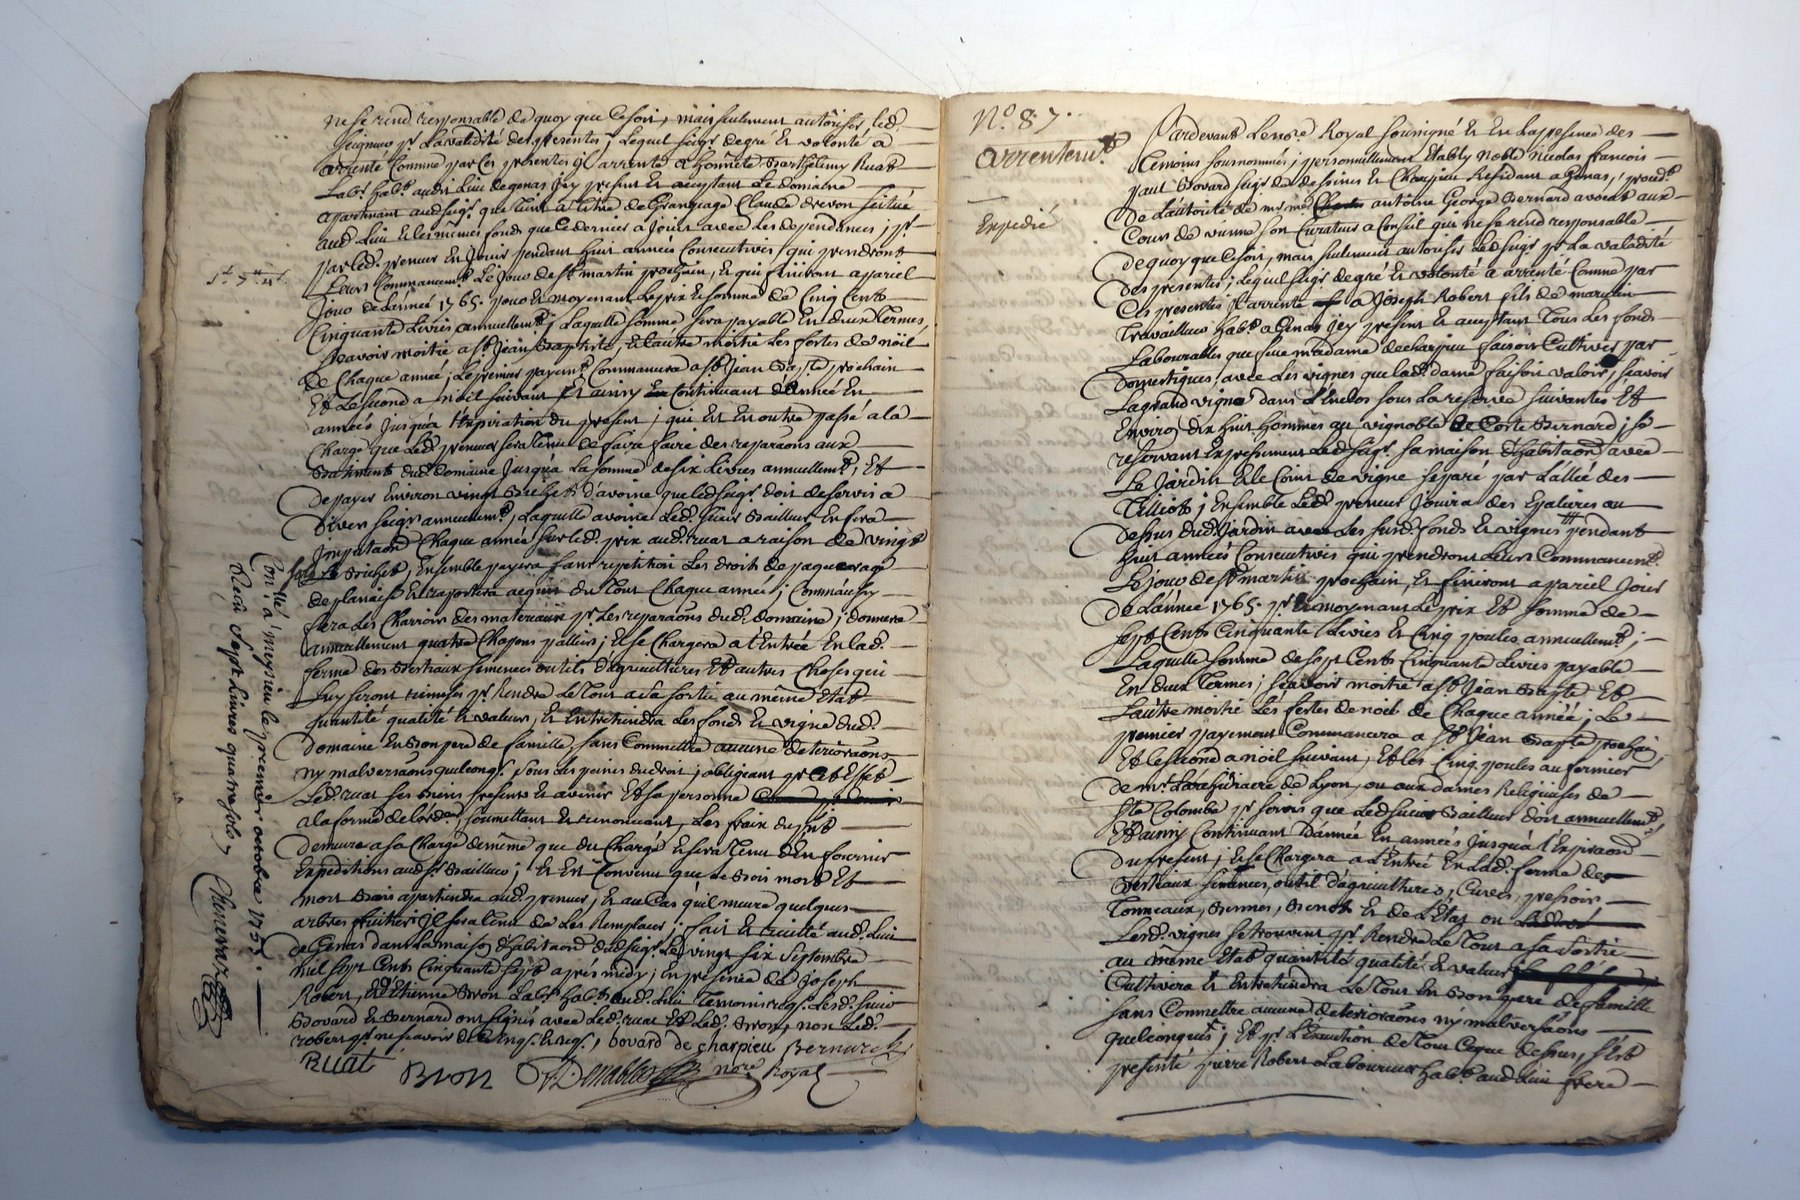 ne se rend responsable de quoy que ce soit, mais seulement autoriser led.
seigneur pr. la validité des presentes; lequel seigr. de gré et volonté a
arrenté comme par ces presentes il arrente a honnete Barthelemy Ruat
labr. habt. aud. lieu de genas icy present et acceptant le domaine
apartenant aud. seigr. que tient a titre de Grangeage Claude drevon scitué
aud. lieu et les memes fonds que ce dernier a jouis avec les dependances, pr.
par led. preneur en jouir pendant huit années consecutives qui prendront
leurs commancemt. le jour de st. martin prochain, et qui finiront a pareil
jour de l'année 1765. pour et moyenant le prix et somme de cinq cents
cinquante livres annuellemt. laquelle somme sera payable en deux termes,
sçavoir moitié a st. jean Baptiste, et l'autre moitié les fetes de noël
de chaque année; le premier payemt. commancera a st. jean Bapte. prochain
et le second a noël suivant et ainsy continuant d'année en
année jusqu'à l'expiration du present; qui est en outre passé a la
charge que led. preneur sera tenu de faire faire des reparaons aux
Batiments dud. domaine jusqu'a la somme de six livres annuellemt., et
de payer environ vingt Bichets d'avoine que led. seigr. doit de servis a
divers seigrs. annuellemt., laquelle avoine led. sieur Bailleur en fera
imputaon chaque année sur led. prix aud. ruat a raison de vingt
sols le Bichet, ensemble payera sans repetition les droits de paquerage
de planaise et raportera acquis du tout chaque année;
fera les charrois des materiaux pr. les reparaons dud. domaine; donnera
annuellement quatre chapons; et se chargera a l'entrée en lad.
ferme des Bestiaux semences outils d'agricultures et autres choses qui
luy seront remises pr. rendre le tout a sa sortie au même etat
quantité qualité et valeur, et entretiendra les fonds et vigne dud.
domaine en bon pere de famille, sans commettre aucune deterioraons
ny malversaons quelconqs. sous les peines du droit; obligeant pr. cet effet
led. ruat ses biens presents et avenir et sa personne
a la forme de l'ordce., soumettant et renoncant, les fraix du pnt.
demeure a sa charge de même que du chargé et sera tenu d'en fournir
expeditions aud. sr. Bailleur; et est convenu que le Bois mort et
mort Bois apartiendra aud. preneur, et au cas qu'il meure quelques
arbres fruitiers il sera tenu de les remplacer; fait et recitté aud. lieu
de Genas dans la maison d'habitaon dud. seigr. le vingt six septembre
mil sept cents cinquante sept après midy; en presence de joseph
Robert, et d'Etienne Bron labrs. habts. aud. lieu temoins requis lesd. sieurs
Bovard et Bernard ont signés avec led. ruat et led. Bron, non led.
robert pr. ne sçavoir de ce enqs. et reqs., bovard de charpieu Bernard
Ruat Bron nore. Royal
Conllé. à meyzieu le premier octobre 1757.
Reçu sept livres quatre sols
No. 87.
Arrentemt.
Expedié
Pardevant le nore. Royal soussigné et en la presence des
temoins sousnommés; personnellement etably noble nicolas francois
paul Bovard seigr. de dessines et charpieu residant a Genas, proced.
de l'autorité de mr. me. antoine George Bernard avocat aux
cours de vienne son curateur a conseil qui ne se rend responsable
de quoy que ce soit, mais seulement autoriser led. seigr. pr. la validité
des presentes; lequel seigr. de gré et volonté a arrenté comme par
ces presentes il arrente a joseph Robert fils de
travailleur habt. a Genas icy present et acceptant tous les fonds
labourables que feue madame de charpieu faisoit cultiver par
domestiques, avec les vignes que lad. dame faisoit valoir, sçavoir
la grand vigne dans l'enclos sous la reserve suivantes et
environ dix huit hommes au vignoble de Coste Bernard; se
reservant expressement led. seigr. sa maison d'habitaon avec
le jardin et le coin de vigne separé par l'allée des
tilliots; ensemble led. preneur jouira des
dessus dud. jardin avec les susd. fonds et vignes pendant
huit années consecutives qui prendront leurs commancemt.
le jour de st. martin prochain, et finiront a pareil jour
de l'année 1765. pr. et moyenant le prix et somme de
sept cents cinquante livres et cinq poules annuellemt.;
laquelle somme de sept cents cinquante livres payable
en deux termes; sçavoir moitié a st. jean Bapte. et
l'autre moitié les fetes de noël de chaque année; le
premier payement commancera a st. jean Bapte. prochain,
et le second a noël suivant, et les cinq poules au fermier
de mr. l'archidiacre de Lyon, ou aux dames Religieuses de
ste. Colombe pr. servis que led. sieur Bailleur doit annuellemt.
et ainsy continuant d'année en année jusqu'à l'expiraon
du present; et se chargera a l'entrée en lad. ferme des
Bestiaux, semences, outils d'agricultures, cuves, pressoir
tonneaux, Bennes, Benots et de l'état ou
lesd. vignes se trouvent pr. rendre le tout a sa sortie
au même etat quantité qualité et valeur
cultivera et entretiendra le tout en bon pere de famille
sans commettre aucune deterioraons ny malversaons
quelconques; et pr. l'execution de tout ce que dessus, s'est
presenté pierre Robert laboureur habt. aud. lieu frere